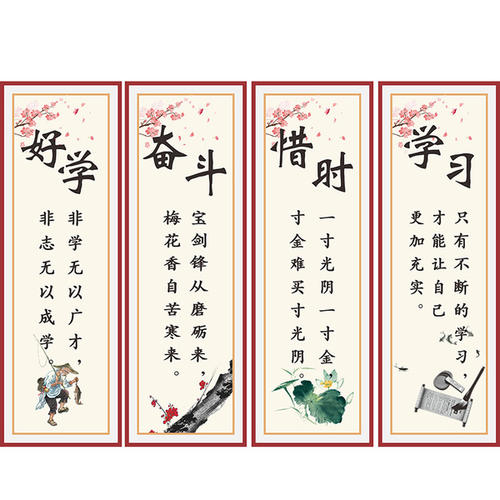 好学
非学无以广才，
非志无以成学
奋斗
宝剑锋从磨砺来，
梅花香自苦寒来。
惜时
一寸光阴一寸金
寸金难买寸光阴。
学习
只有不断的学习，
才能让自己
更加充实。